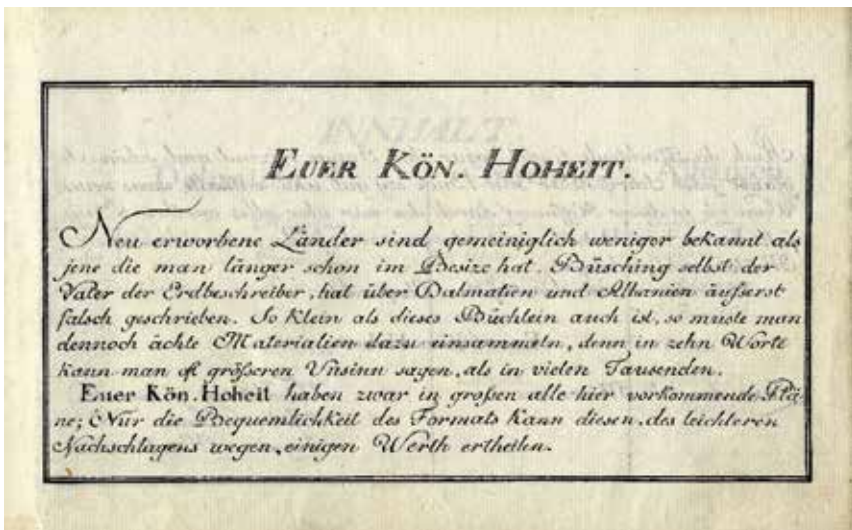 EUER KÖN. HOHEIT.
Neu erworbene Länder sind gemeiniglich weniger bekannt als
jene die man länger schon im Besize hat. Büsching selbst der
Vater der Erdbeschreiber, hat über Dalmatien und Albanien äusserst
falsch geschrieben. So klein als dieses Büchlein auch ist, so muste man
dennoch ächte Materialien dazu einsammeln, denn in zehn Worte
kann man oft grösseren Unsinn sagen, als in vielen Tausenden.
Euer Kön. Hoheit haben zwar in grossen alle hier vorkommende Plä-
ne; Nur die Bequemlichkeit des Formats kann diesen, des leichteren
Nachschlagens wegen, einigen Werth ertheilen.